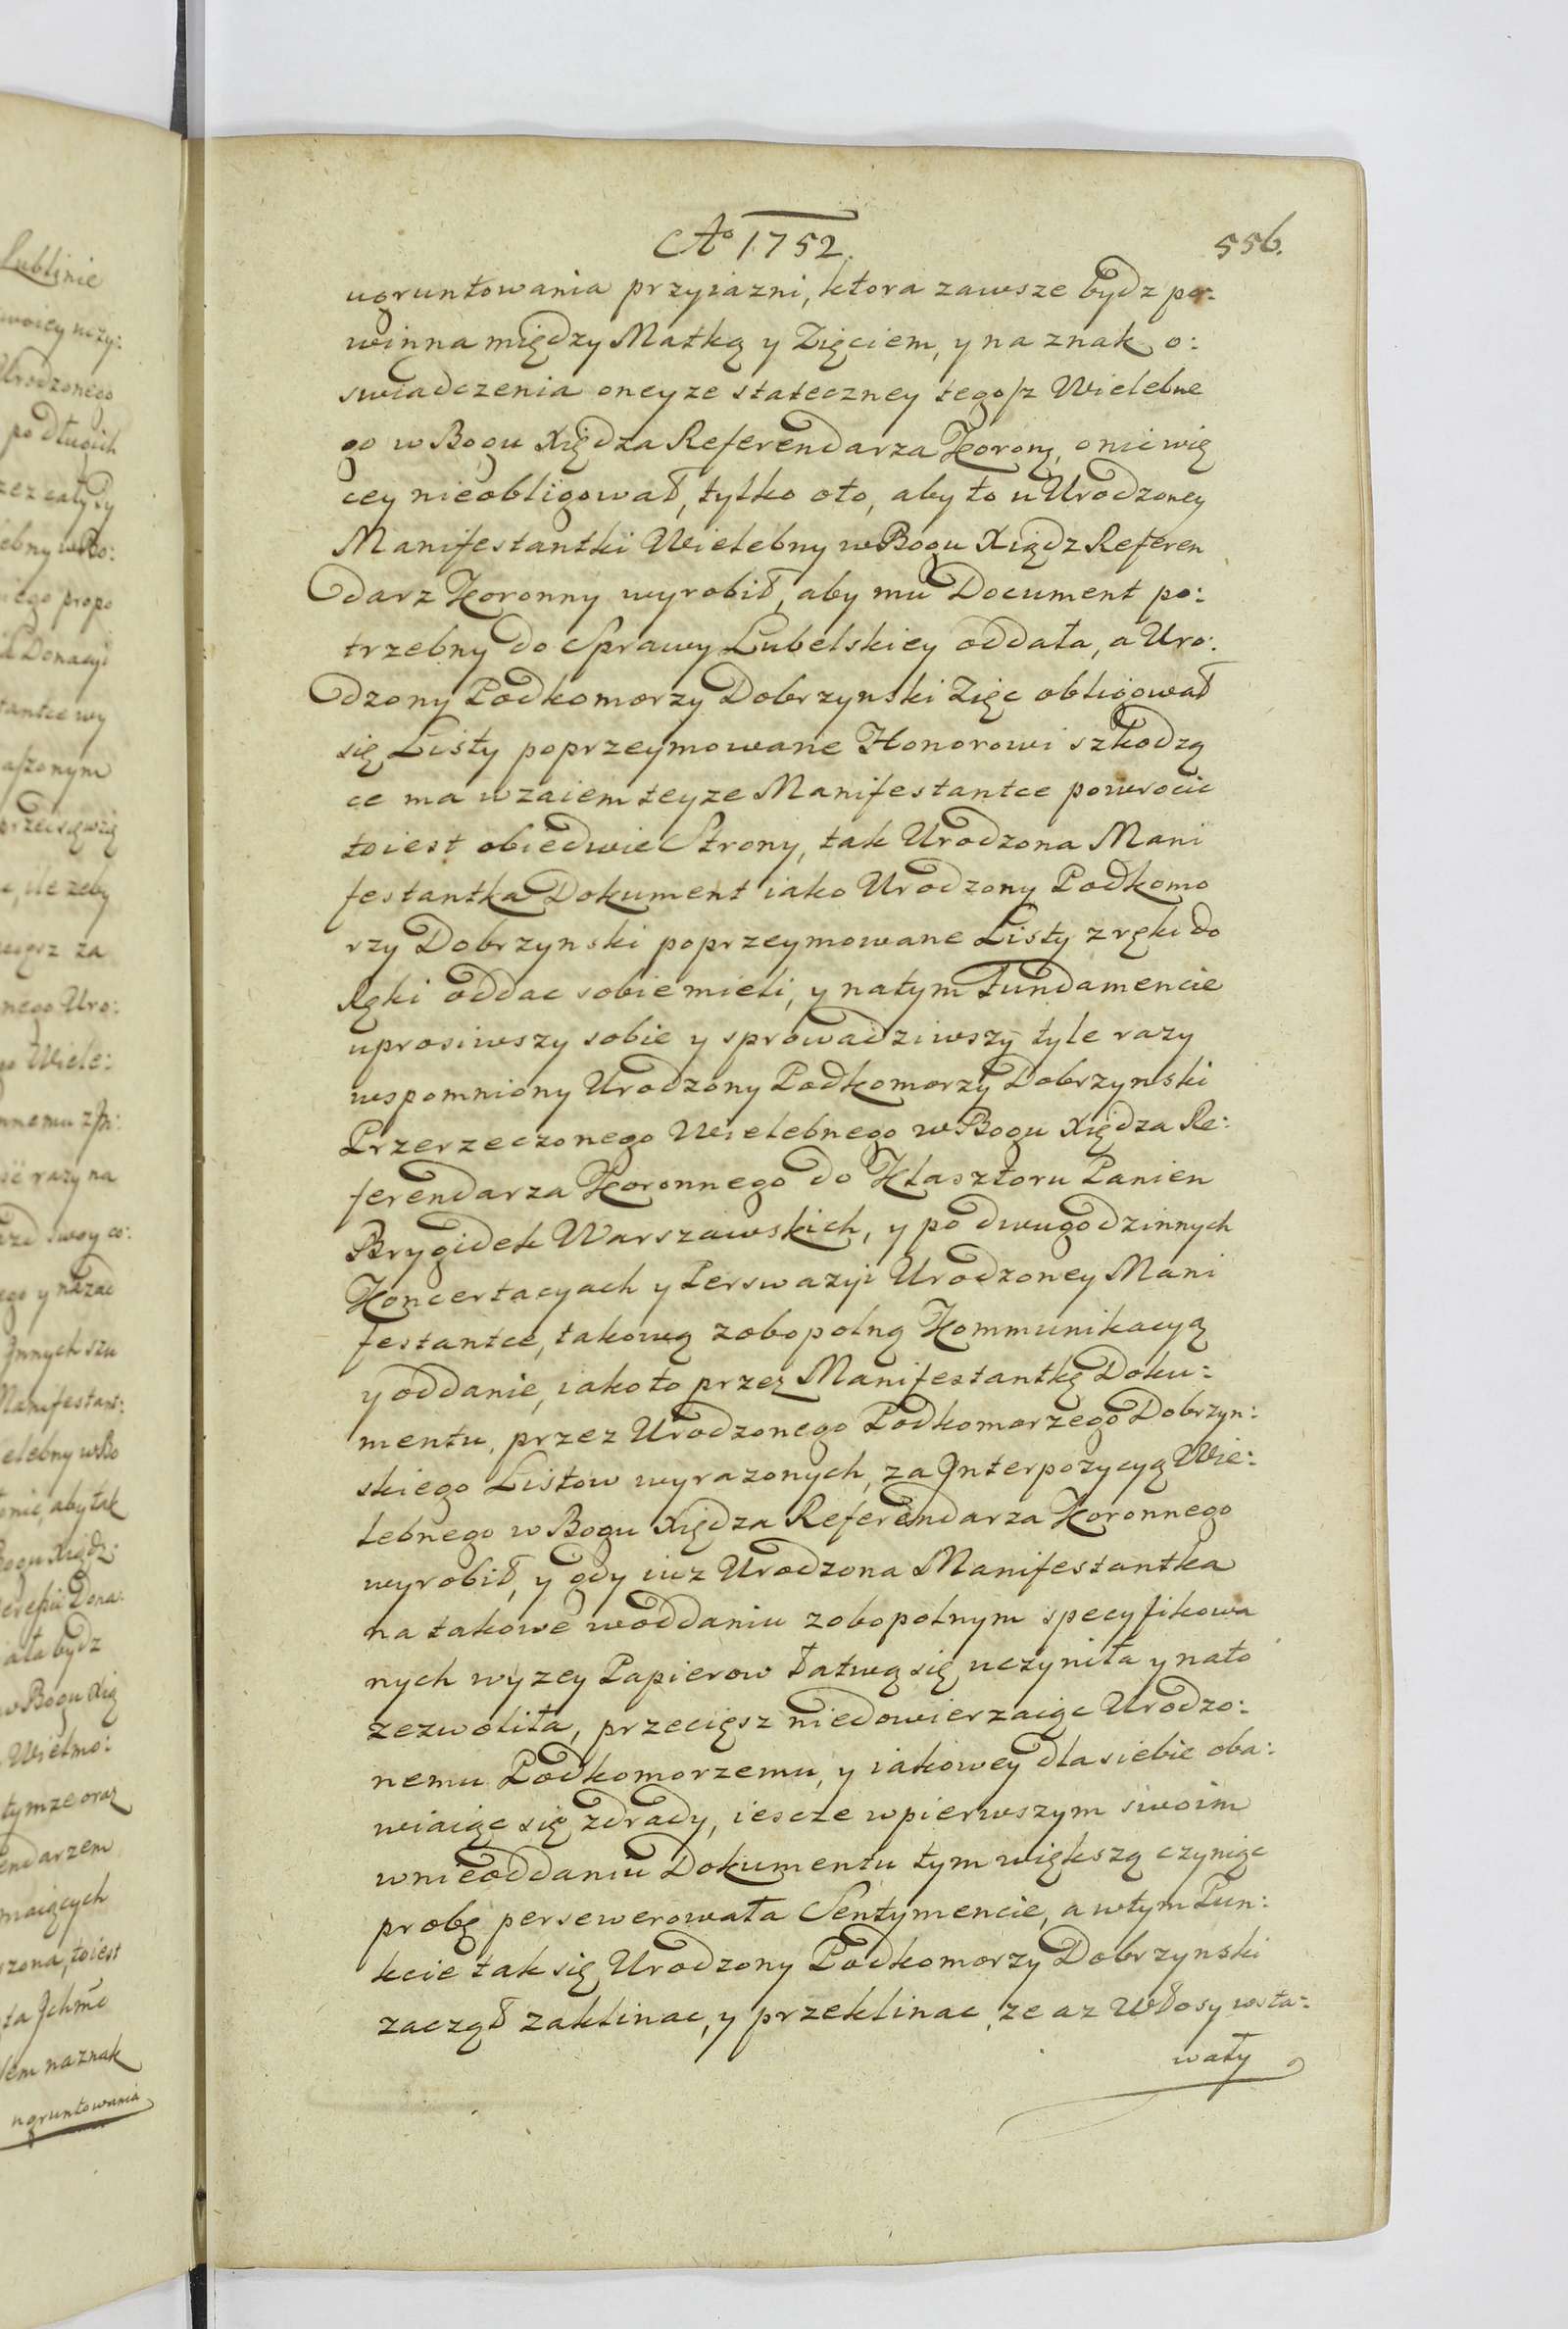 Ao 1752.
556.
ugruntowania przyiazni, ktora zawsze bydz po:
winna między Matką y Zięciem, y na znak o:
swiadczenia oneyze stateczney tegosz Wielebne
go w Bogu Xiędza Referendarza Korony, o nic wię
cey nieobligował, tylko oto, aby to u Urodzoney
Manifestantki Wielebny w Bogu Xiądz Referen
darz Koronny wyrobił, aby mu Document po:
trzebny do Sprawy Lubelskiey oddała, a Uro:
dzony Podkomorzy Dobrzynski Zięc obligował
się Listy poprzeymowane Honorowi szkodzą
ce ma wzaiem teyze Manifestantce powrocic
toiest obiedwie Strony, tak Urodzona Mani
festantka Dokument iako Urodzony Podkomo
rzy Dobrzynski poprzeymowane Listy z ręki do
Ręki oddac sobie mieli, y natym Fundamencie
uprosiwszy sobie y sprowadziwszy tyle razy
wspomniony Urodzony Podkomorzy Dobrzynski
Przerzeczonego Wielebnego w Bogu Xiędza Re:
ferendarza Koronnego do Klasztoru Panien
Brygidek Warszawskich, y po dwugodzinnych
Koncertacyach y Perswazyi Urodzoney Mani
festantce, takową zobopolną Kommunikacyą
y oddanie, iakoto przez Manifestantkę Doku:
mentu, przez Urodzonego Podkomorzego Dobrzyn:
skiego Listow wyrazonych, za Interpozycyą Wie:
lebnego w Bogu Xiędza Referendarza Koronnego
wyrobił, y gdy iuz Urodzona Manifestantka
na takowe woddaniu zobopolnym specyfikowa
nych wyzey Papierow łatwą się uczyniła y nato
zezwoliła, przeciesz niedowierzaiąc Urodzo:
nemu Podkomorzemu, y iakowey dla siebie oba:
wiaiąc się zdrady, iescze wpierwszym swoim
wnieoddaniu Dokumentu tym większą czyniąc
probę persewerowała Sentymencie, a wtym Pun:
kcie tak się Urodzony Podkomorzy Dobrzynski
zaczął zaklinac, y przeklinac, ze az Włosy wsta:
wały
Lublinie
Urodzonego
po długich
propo
Donacyi
wy
zeby
za
nego Uro:
Wiele:
razy na
swoy
y nazad
Innych
Manifestant:
w Bo
aby tak
Bogu Xiądz
Dona:
bydz
w Bogu Xią
Wielmo:
tymze oraz
maiących
toiest
Ichmć
na znak
ugruntowania